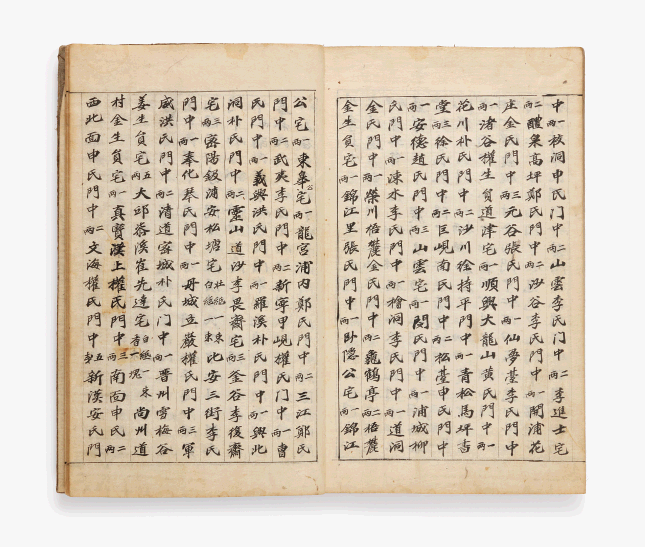 中一兩校洞申氏门中二兩山雲李氏门中二兩李進士宅
二兩醴泉高坪鄭氏門中二兩沙谷李氏門中一兩開浦花
庄金氏門中三兩元谷張氏門中一兩仙夢臺李氏門中
一兩渚谷權生員道津宅一兩順興大龍山黃氏門中一兩
花川朴氏門中二兩沙川徐持平門中一兩青松馬坪
堂三兩徐氏門中二兩巨峴南氏門中二兩松臺申氏門中
一兩安德趙氏門中三兩山雲宅一兩閔氏門中一兩浦城柳
氏門中一兩涑水李氏門中一兩檜洞李氏門中一兩道洞
金氏門中一兩榮川梧麓金氏門中二兩龜鶴亭二兩梧麓
金生員宅一兩錦江里張氏門中一兩卧隱公宅一兩錦江
公宅一兩東皐公宅一兩龍宮浦内鄭氏門中二兩三江鄭氏
門中二兩武夷李氏門中二兩新寧甲峴權氏門中一兩曹
氏門中一兩義興洪氏門中一兩羅溪朴氏門中一兩興北
洞朴氏門中二兩靈山道沙李畏齋宅三兩釜谷李復齋
宅三兩密陽鈒浦安松塘宅壯紙一束白紙一束比安三街李氏
門中一兩奉化琴氏門中一兩丹城立巖權氏門中三兩軍
威洪氏門中二兩清道密城朴氏门中一兩晋州雪梅谷
姜生員宅五兩大邱漆溪崔先達宅白紙一束香一塊尚州道
村金生員宅一兩真寶漢上權氏門中三兩南面申氏二兩
西北面申氏門中二兩文海權氏門中五兩新漢安氏門